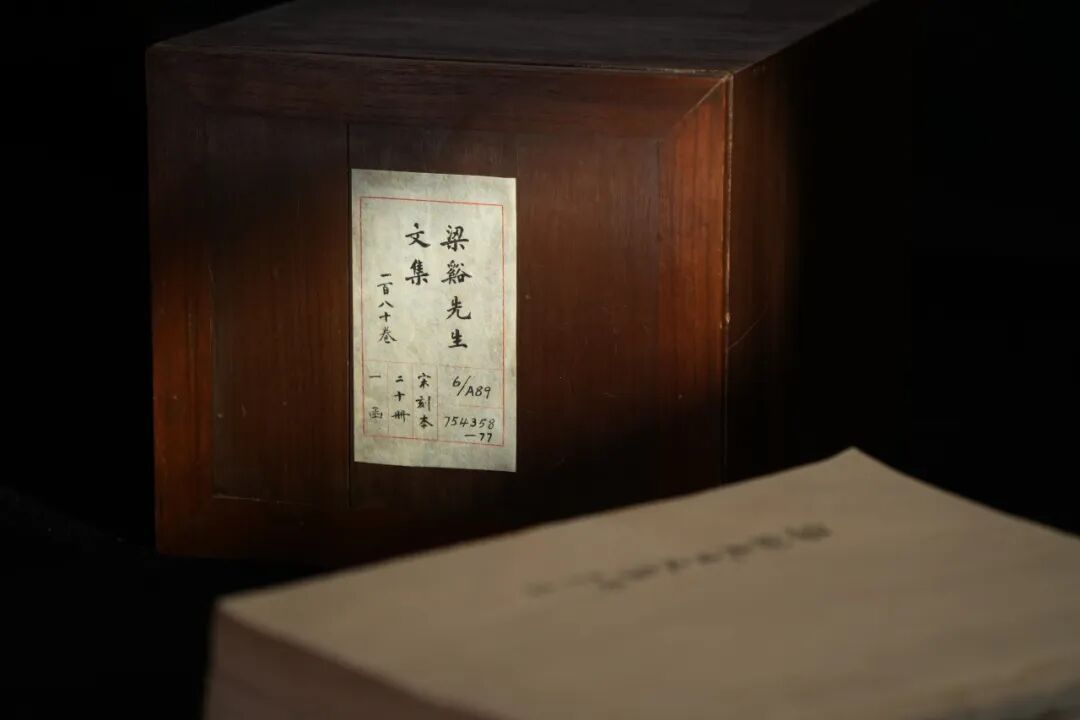 梁谿先生
文集
一百八十卷
6/A89
754358
—77
宋刻本
二十册
一函